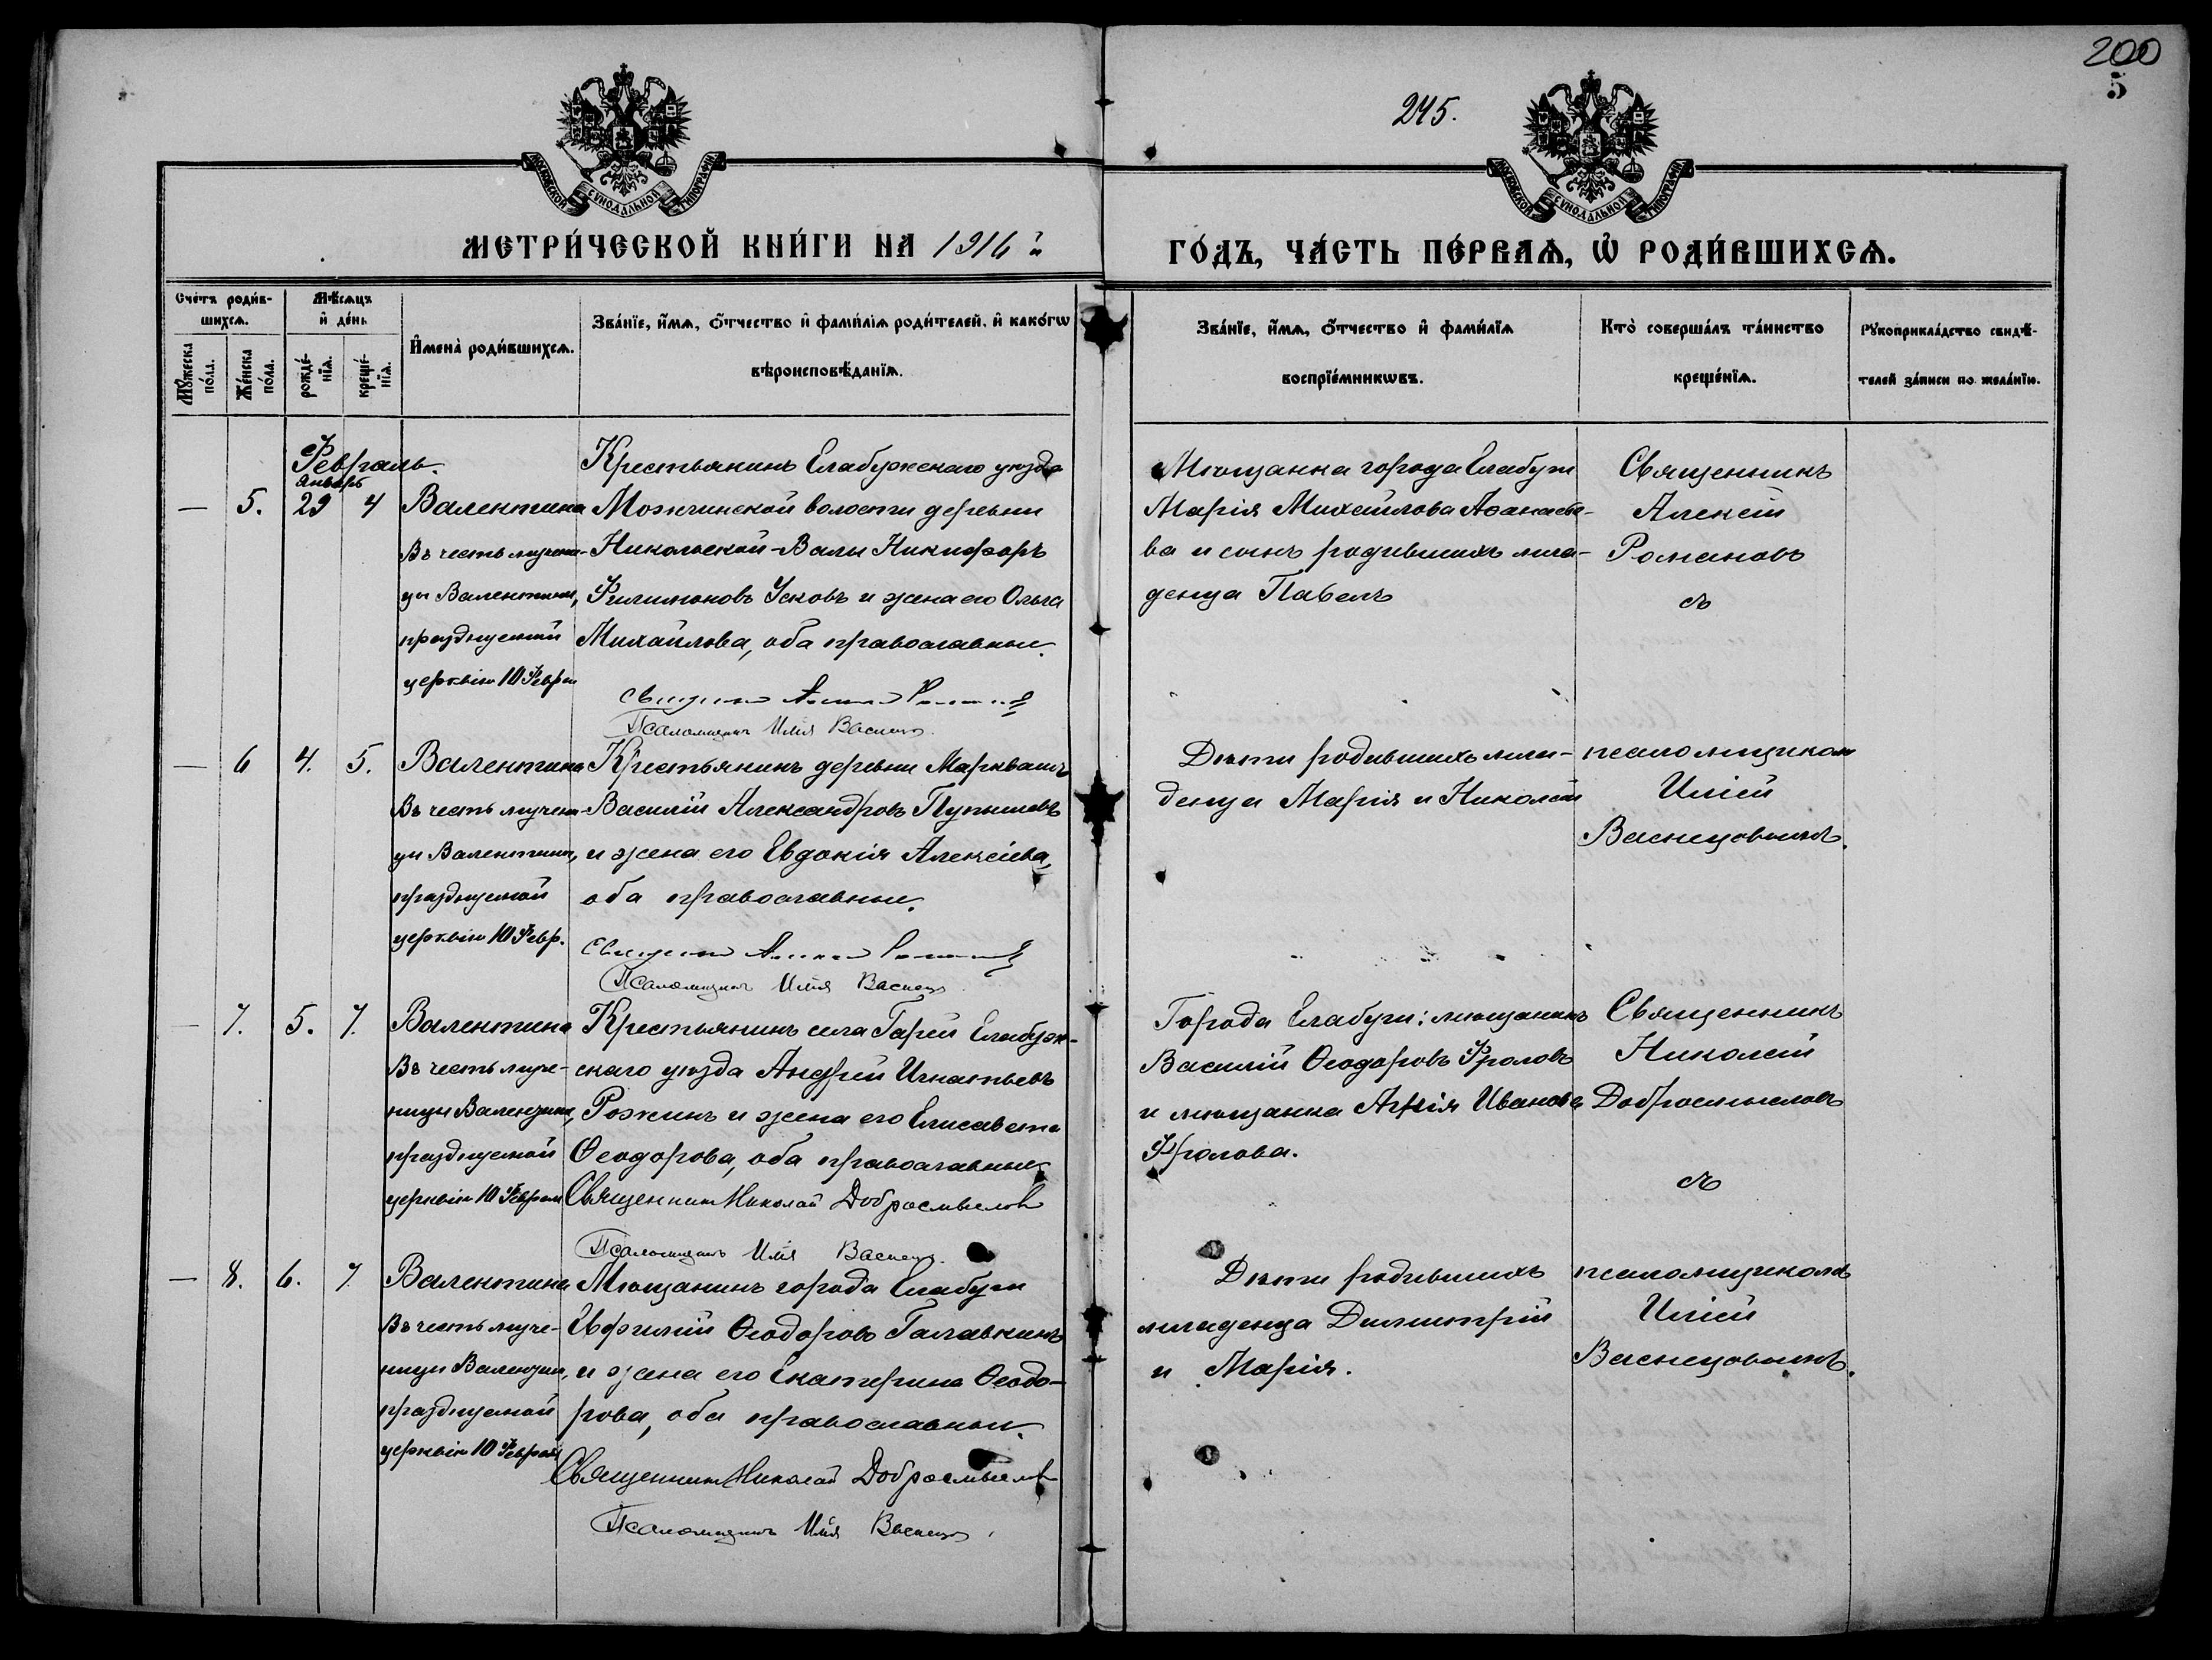 200
5
245.
МОСКОВСКОЙ СѴНОДАЛЬНОЙ ТИПОГРАФІИ
МОСКОВСКОЙ СѴНОДАЛЬНОЙ ТИПОГРАФІИ
МЕТРИ́ЧЕСКОЙ КНИ́ГИ НА 1916 й
ГО́ДЪ, ЧА́СТЬ ПЕ́РВАѦ, Ѡ҆ РОДИ́ВШИХСѦ.
Сче́тъ роди́в-
шихсѧ.
Мѹ́жеска по́ла.
Же́нска по́ла.
Мѣ́сѧцъ
и҆ де́нь
рожде́-
нїѧ.
креще́-
нїѧ.
И҆мена̀ роди́вшихсѧ.
Зва́нїе, и҆́мѧ, ѻ҆́тчество и҆ фами́лїѧ роди́телей, и҆ како́гѡ
вѣроисповѣ́данїѧ.
Зва́нїе, и҆́мѧ, ѻ҆́тчество и҆ фами́лїѧ
воспрїе́мникѡвъ.
Кто̀ соверша́лъ та́инство
креще́нїѧ.
Рѹкоприкла́дство свидѣ́-
телей за́писи по жела́нїю.
Февраль.
Январь
— 5. 29 4 Валентина
Въ честь мучени-
цы Валентины,
празднуемой
церковію 10 Февра
Крестьянинъ Елабужскаго уѣзда
Можгинской волости деревни
Никольской-Валы Никифоръ
Филимоновъ Усковъ и жена его Ольга
Михайлова, оба православные.
Священникъ Алексій Романовъ
Псаломщикъ Илія Васнецовъ
Мѣщанка города Елабуги
Марія Михайлова Аѳанасье-
ва и сынъ родившихъ мла-
денца Павелъ
Священникъ
Алексій
Романовъ
съ
— 6 4. 5. Валентина
Въ честь мучени-
цы Валентины,
празднуемой
церковію 10 Февр.
Крестьянинъ деревни Маркваши
Василій Александровъ Пупышевъ
и жена его Евдокія Алексіева,
оба православные.
Священникъ Алексій Романовъ
Псаломщикъ Илія Васнецовъ
Дѣти родившихъ мла-
денца Марія и Николай
псаломщикомъ
Иліей
Васнецовымъ.
— 7. 5. 7. Валентина
Въ честь муче-
ницы Валентины,
празднуемой
церковію 10 Феврал
Крестьянинъ села Гарей Елабуж-
скаго уѣзда Андрей Игнатьевъ
Рожинъ и жена его Елисавета
Ѳеодорова, оба православные
Священникъ Николай Добросмысловъ
Псаломщикъ Илія Васнецовъ.
Города Елабуги: мѣщанинъ
Василій Ѳеодоровъ Фроловъ
и мѣщанка Агнія Иванова
Фролова.
Священникъ
Николай
Добросмысловъ
съ
— 8. 6. 7 Валентина
Въ честь муче-
ницы Валентины,
празднуемой
церковію 10 Феврал
Мѣщанинъ города Елабуги
Ѳеодоровъ Галавкинъ
и жена его Екатерина Ѳеодо-
рова, оба православные.
Священникъ Николай Добросмысловъ
Псаломщикъ Илія Васнецовъ.
Дѣти родившихъ
младенца Димитрій
и Марія.
псаломщикомъ
Иліей
Васнецовымъ.